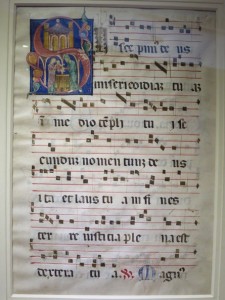 Suscepimus deus
misericordiam tuam
in medio templi tui se
cundum nomen tuum deus
ita et laus tua in fines
terre iusticia plena est
dextera tua. V. Magnus